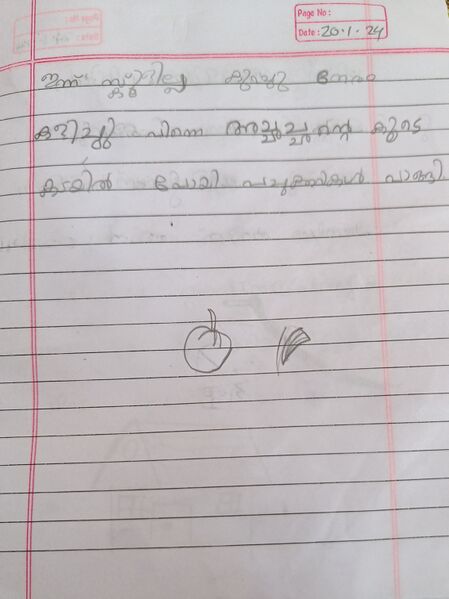 Page No:
Date: 20.1.24
ഇന്ന് സ്കൂളില്ല കുറച്ചു നേരം
കളിച്ചു പിന്നെ അച്ഛച്ഛൻ്റെ കൂടെ
കടയിൽ പോയി പച്ചക്കറികൾ വാങ്ങി